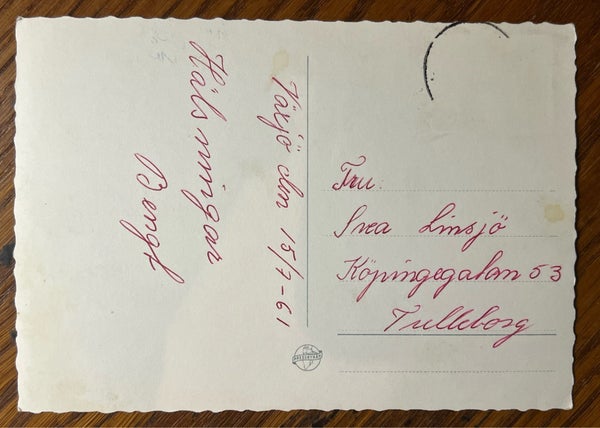 Värsjö den 15/7-61
Hälsningar
Bengt
Fru:
Svea Linsjö
Köpingegatan 53
Trelleborg